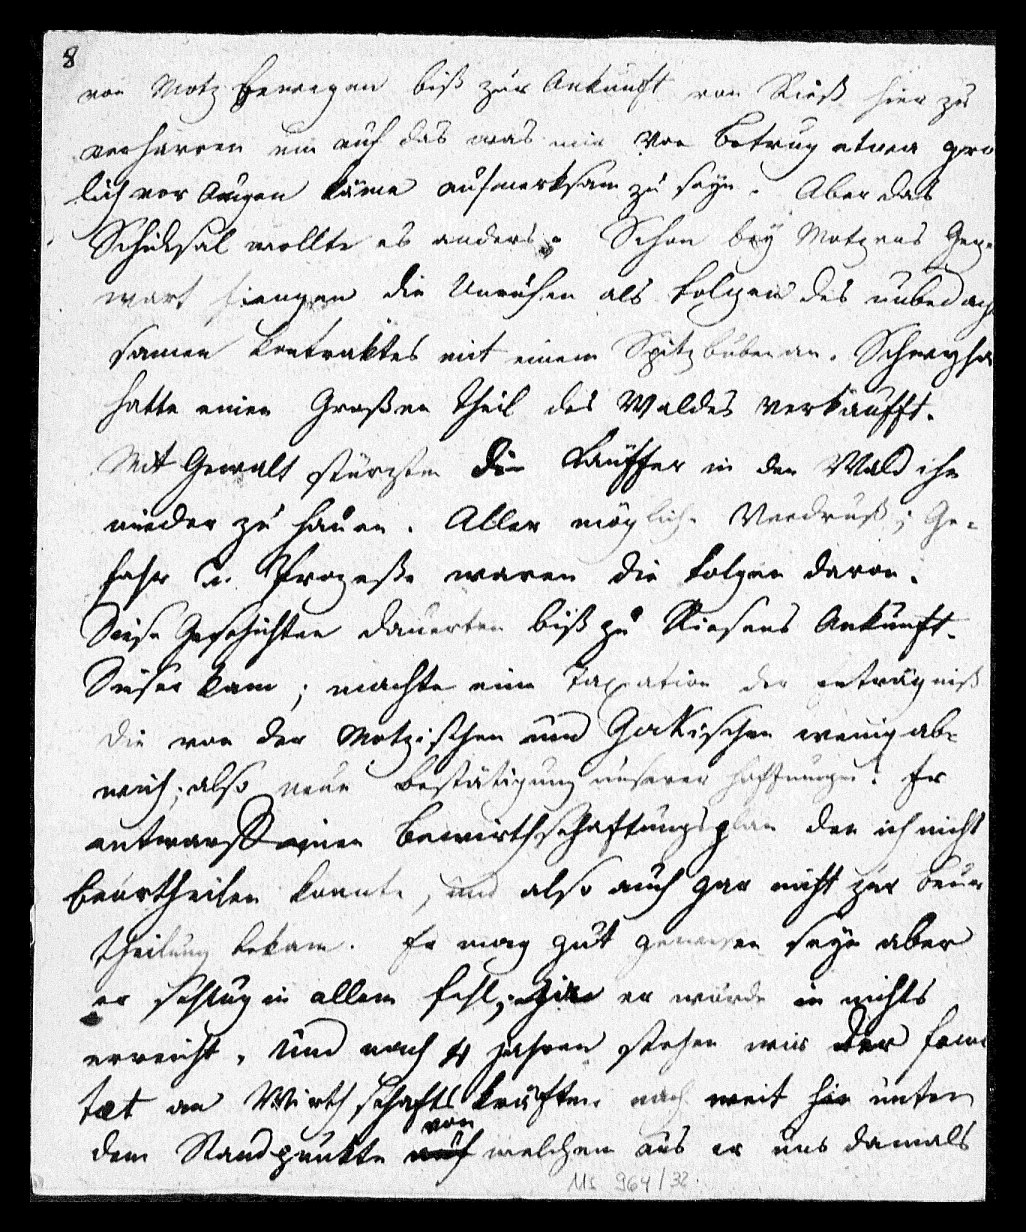 8
von Motz bewegen biß zur Ankunft von Rieß hier zu
verharren um auf das was mir von Betrug etwa grö
lich vor Augen käme aufmerksam zu seyn. Aber das
Schicksal wollte es anders. Schon bey Motzens Gegen-
wart fiengen die Unruhen als Folgen des unbedach
samen Kontraktes mit einem Spitzbuben an.
hatte einen Großen Theil des Waldes verkaufft.
Mit Gewalt stürzten die Käuffer in den Wald ihn
nieder zu hauen. Aller mögliche Verdruß; Ge-
fahr u. Prozeße waren die Folgen davon.
Diese Geschichten dauerten biß zu Riesens Ankunft.
Dieser kam; machte eine Taxation der erträgniß
die von der Motzischen und Hakischen wenig ab-
wich; also neue Bestätigung unserer Hoffnungen! Er
entwarff einen Bewirthschaftungsplan den ich nicht
beurtheilen konnte, und also auch gar nicht zur Beur
theilung bekam. Er mag gut gewesen seyn aber
er schlug in allem fehl, er wurde in nichts
erreicht. Und nach 4 Jahren stehen wir der
tæt an Wirthschafts kräften noch weit hie unten
dem Standpunkte von welchen aus er uns damals
Ms 964/32